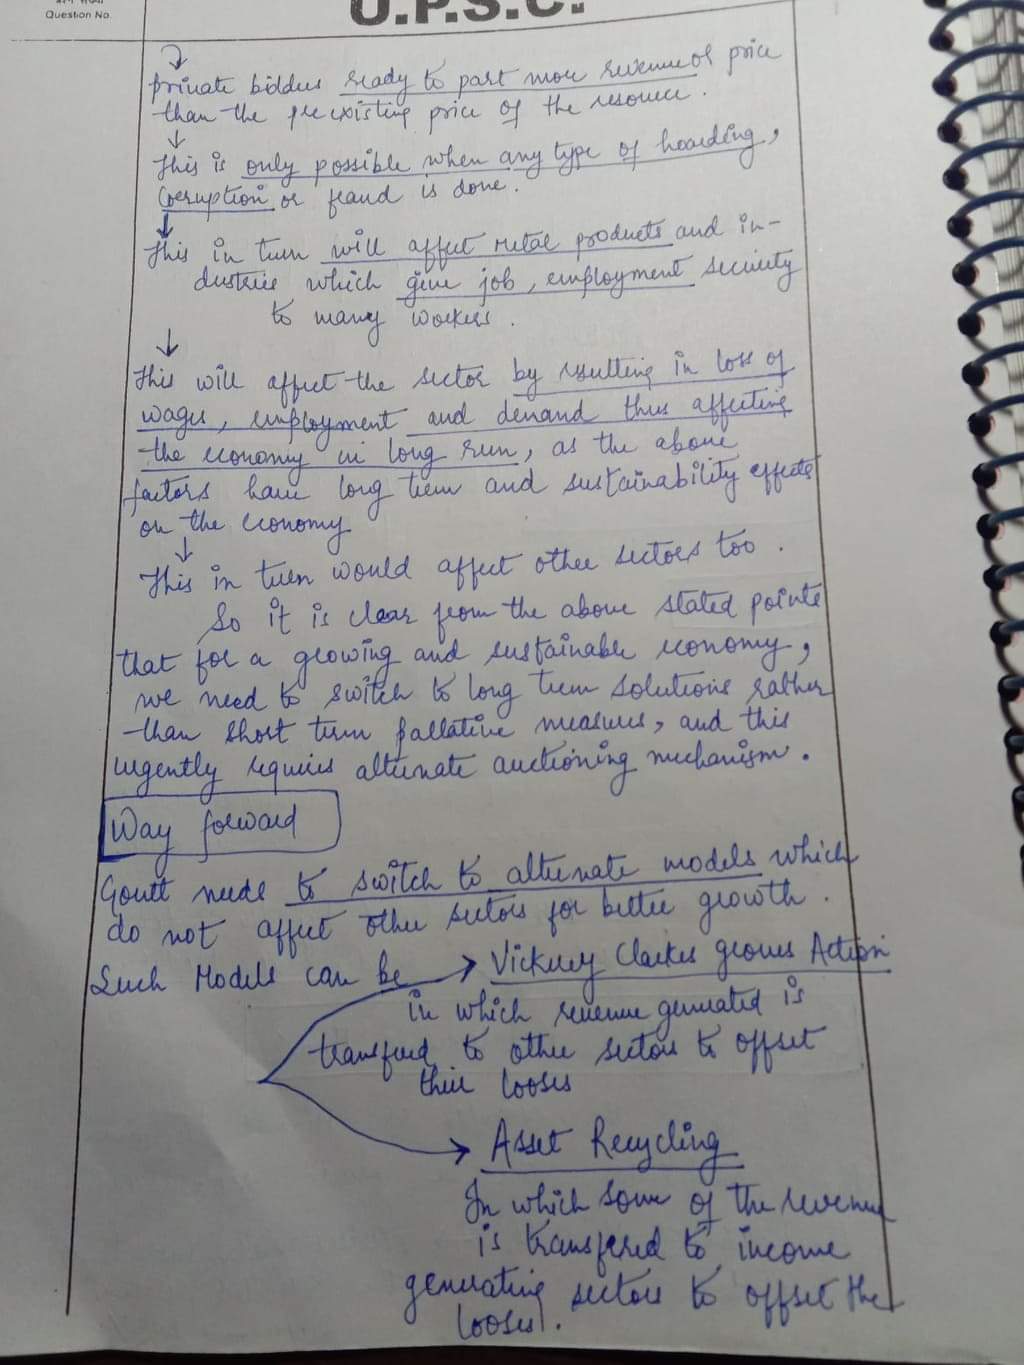 Question No.
U.P.S.C.
private bidders ready to part more revenue or price
than the preexisting price of the resource.
This is only possible when any type of hoarding,
Corruption or fraud is done.
This in turn will affect metal products and in-
dustries which give job, employment security
to many workers.
This will affect the sector by resulting in loss of
wages, employment and demand thus affecting
the economy in long run, as the above
factors have long term and sustainability effects
on the economy
This in turn would affect other sectors too.
So it is clear from the above stated points
that for a growing and sustainable economy,
we need to switch to long term solutions rather
than short term pallative measures, and this
urgently requires alternate auctioning mechanism.
Way forward
Govtt needs to switch to alternate models which
do not affect other sectors for better growth.
Such Models can be → Vickrey Clarkes groves Action
in which revenue generated is
transfered to other sectors to offset
their looses
→ Asset Recycling
In which some of the revenue
is transfered to income
generating sectors to offset the
looses.